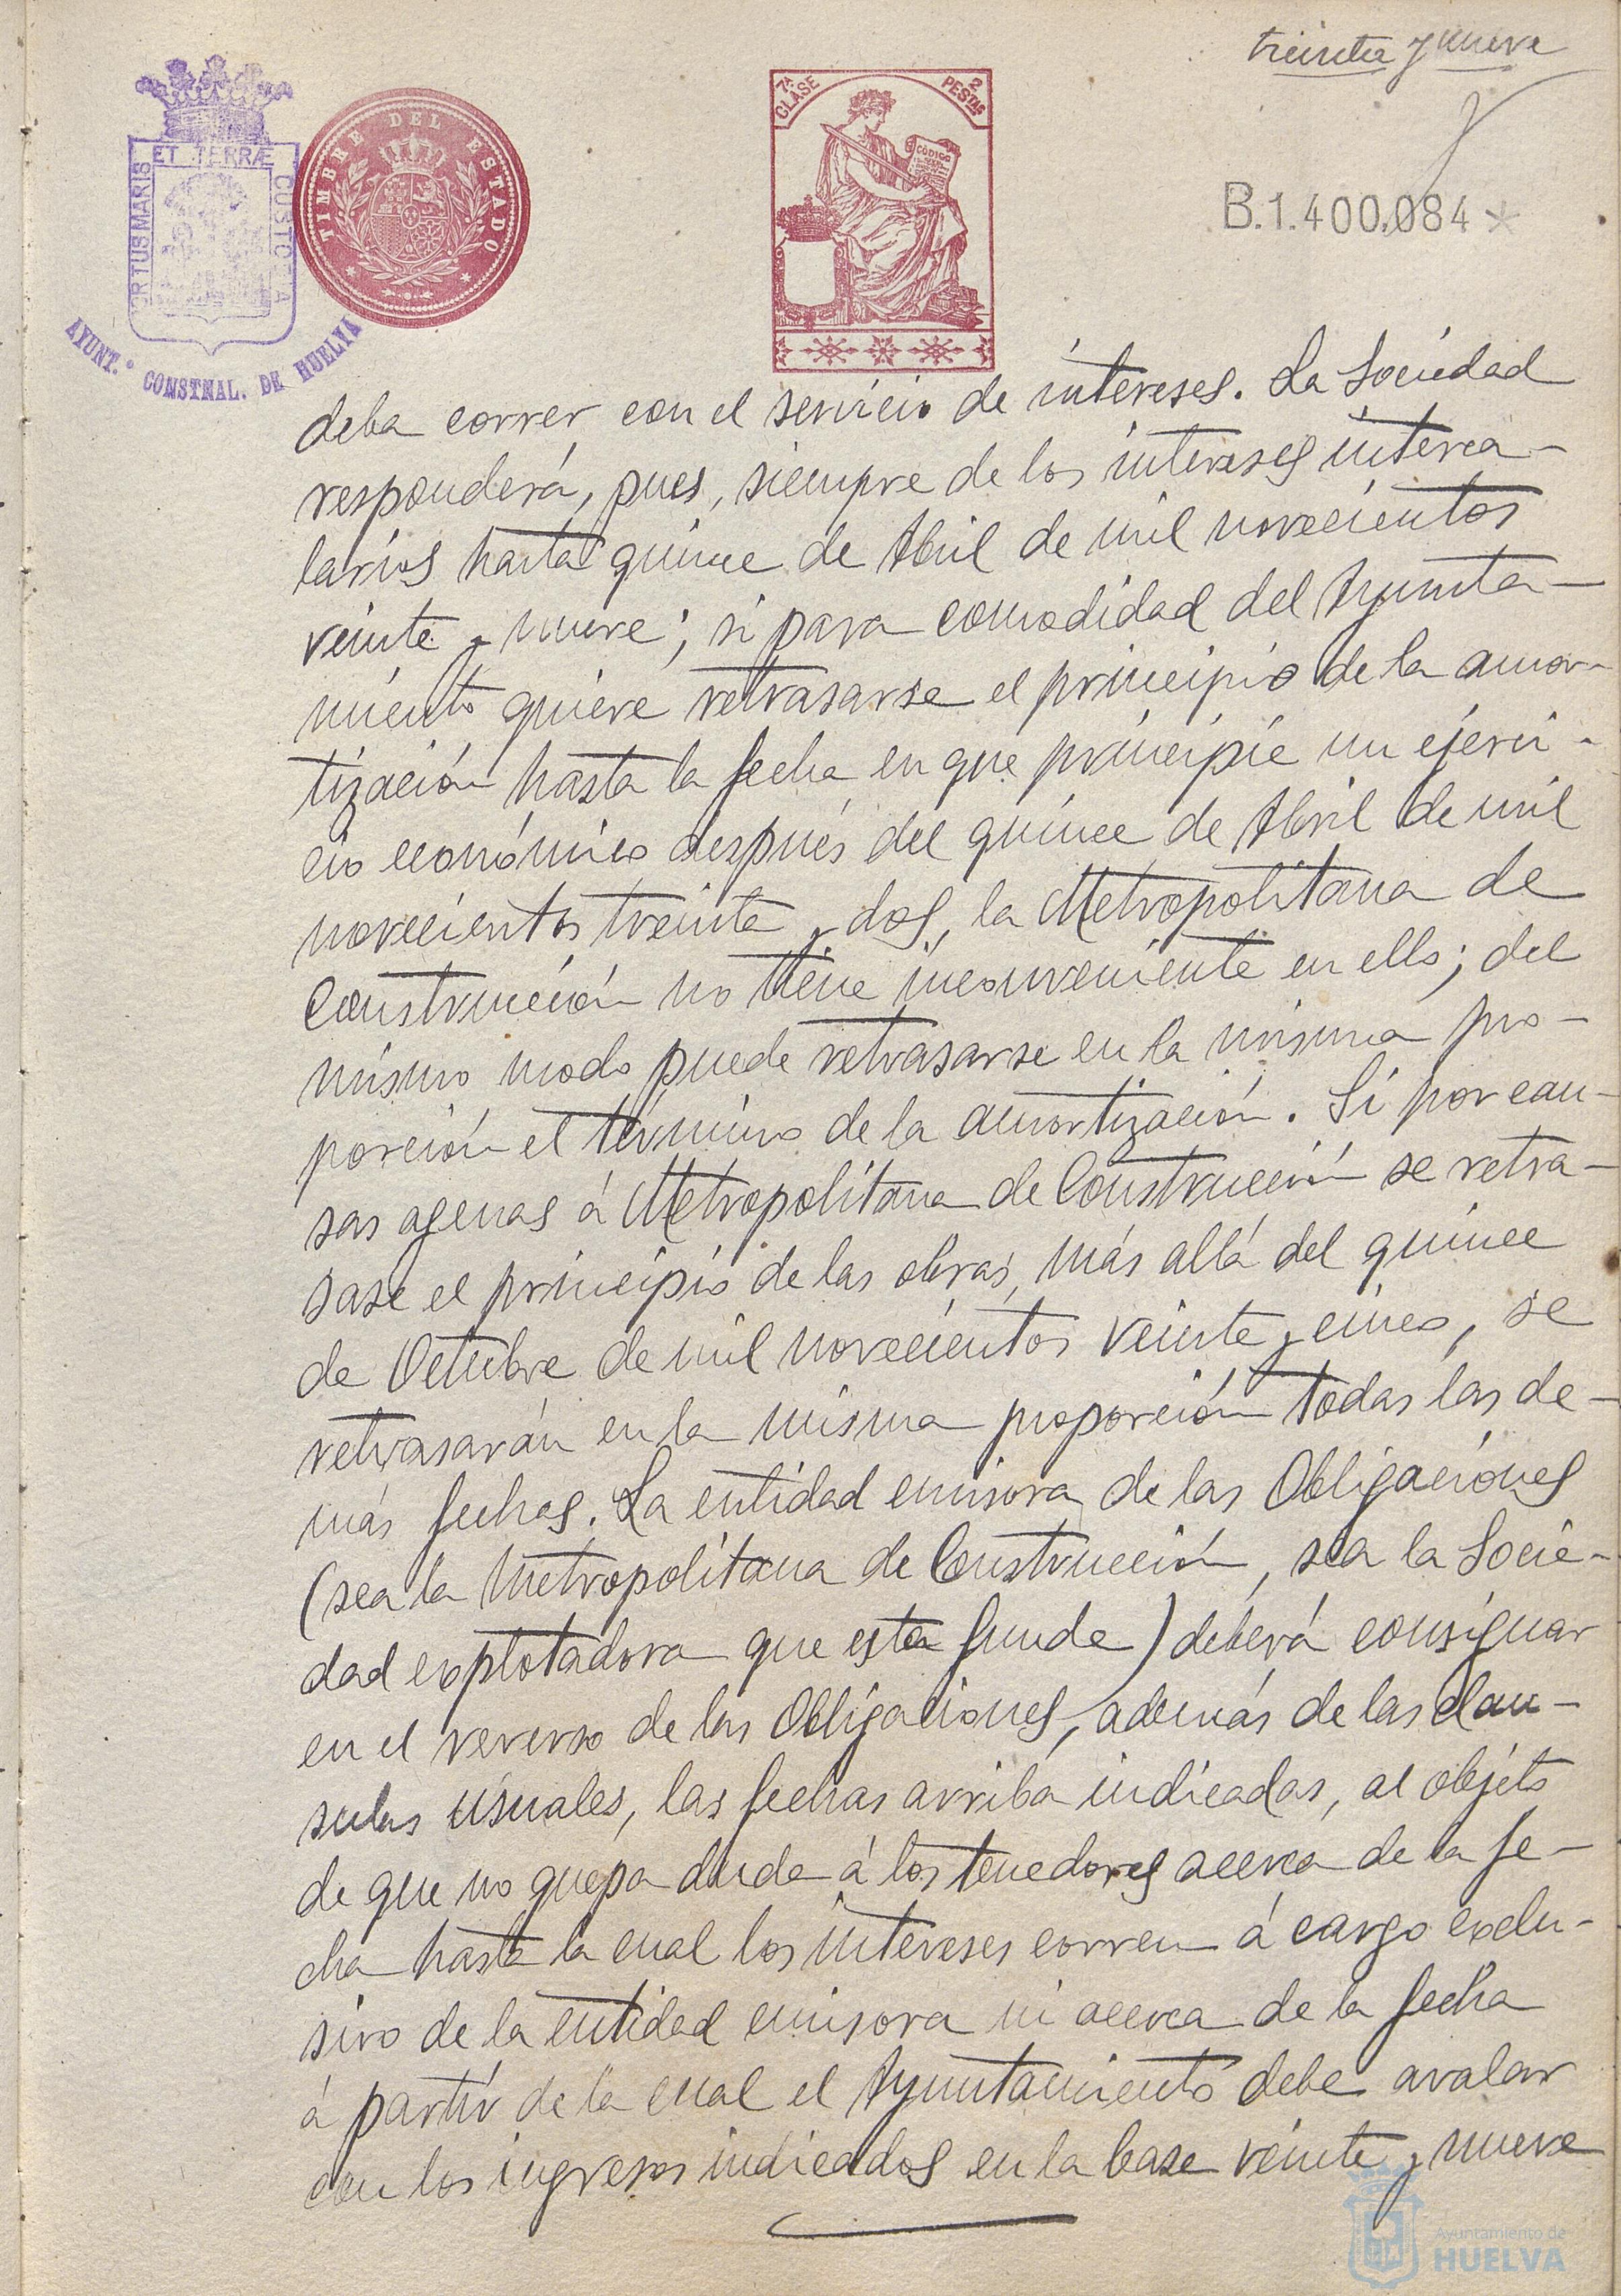 treinta y nueve
7ª CLASE
2 PESTAS
CÓDIGO
TIMBRE DEL ESTADO
ET TERRÆ
PORTUS MARIS
CUSTODIA
AYUNT.º CONSTNAL. DE HUELVA
B.1.400.084*
deba correr con el servicio de intereses. La Sociedad
responderá, pues, siempre de los intereses interca-
larios hasta quince de Abril de mil novecientos
veinte y nueve; si para comodidad del Ayunta-
miento quiere retrasarse el principio de la amor-
tización hasta la fecha en que principie un ejerci-
cio económico después del quince de Abril de mil
novecientos treinta y dos, la Metropolitana de
Construcción no tiene inconveniente en ello; del
mismo modo puede retrasarse en la misma pro-
porción el término de la amortización. Si por cau-
sas agenas á Metropolitana de Construcción se retra-
sase el principio de las obras, más allá del quince
de Octubre de mil novecientos veinte y cinco, se
retrasarán en la misma proporción todas las de-
más fechas. La entidad emisora de las Obligaciones
(sea la Metropolitana de Construcción, sea la Socie-
dad explotadora que esta funde) deberá consignar
en el reverso de las Obligaciones, además de las clau-
sulas usuales, las fechas arriba indicadas, al objeto
de que no quepa duda á los tenedores acerca de la fe-
cha hasta la cual los intereses corren á cargo exclu-
sivo de la entidad emisora ni acerca de la fecha
á partir de la cual el Ayuntamiento debe avalar
con los ingresos indicados en la base veinte y nueve
Ayuntamiento de
HUELVA